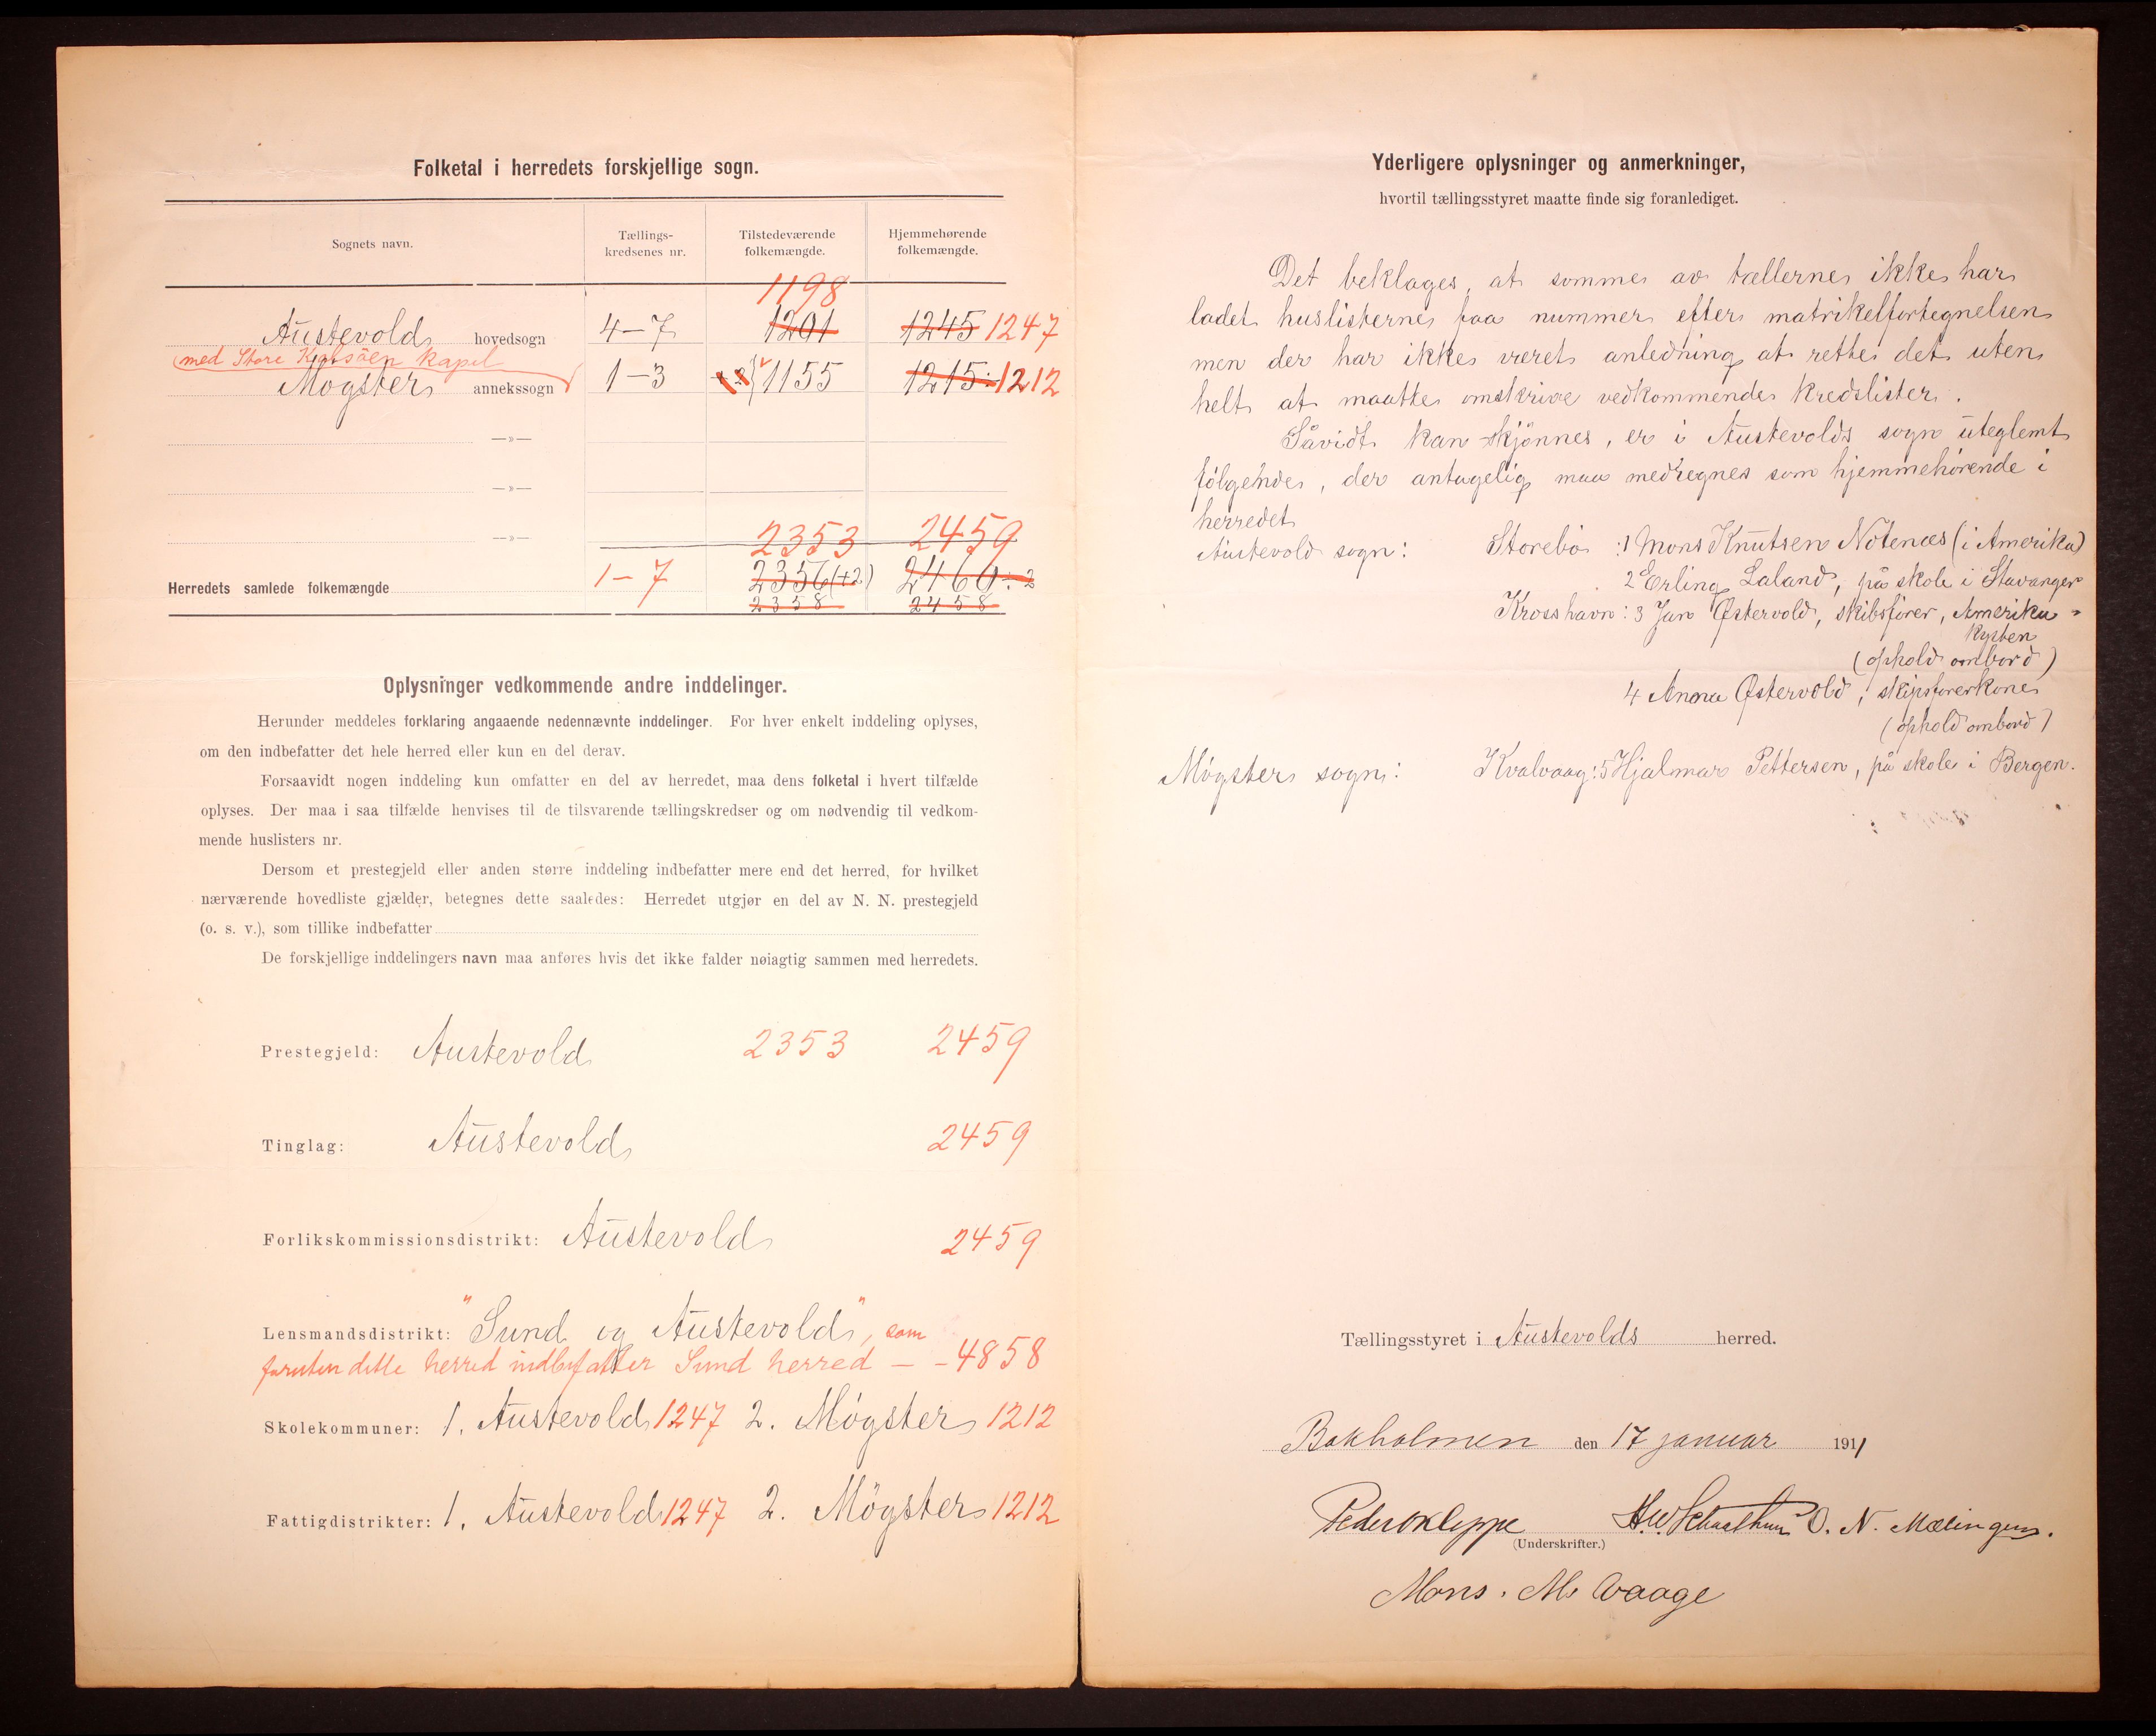 Folketal i herredets forskjellige sogn.
Sognets navn.
Tællings-
kredsenes nr.
Tilstedeværende
folkemængde.
Hjemmehørende
folkemængde.
1198
Austevold hovedsogn 4-7 1201 1245 1247
(med Store Kalsöen kapel)
Møgster annekssogn 1-3 1155 1215 1212
—»—
—»—
—»—
2353 2459
Herredets samlede folkemængde 1-7 2356 (+2) 2460 ÷ 2
2358 2458
Oplysninger vedkommende andre inddelinger.
Herunder meddeles forklaring angaaende nedennævnte inddelinger. For hver enkelt inddeling oplyses,
om den indbefatter det hele herred eller kun en del derav.
Forsaavidt nogen inddeling kun omfatter en del av herredet, maa dens folketal i hvert tilfælde
oplyses. Der maa i saa tilfælde henvises til de tilsvarende tællingskredser og om nødvendig til vedkom-
mende huslisters nr.
Dersom et prestegjeld eller anden større inddeling indbefatter mere end det herred, for hvilket
nærværende hovedliste gjælder, betegnes dette saaledes: Herredet utgjør en del av N. N. prestegjeld
(o. s. v.), som tillike indbefatter
De forskjellige inddelingers navn maa anføres hvis det ikke falder nøiagtig sammen med herredets.
Prestegjeld: Austevold 2353 2459
Tinglag: Austevold 2459
Forlikskommissionsdistrikt: Austevold 2459
Lensmandsdistrikt: "Sund og Austevold", som
foruten dette herred indbefatter Sund herred — - 4858
Skolekommuner: 1. Austevold 1247 2. Møgster 1212
Fattigdistrikter: 1. Austevold 1247 2. Møgster 1212
Yderligere oplysninger og anmerkninger,
hvortil tællingsstyret maatte finde sig foranlediget.
Det beklages, at somme av tællerne ikke har
ladet huslisterne faa nummer efter matrikelfortegnelsen
men der har ikke været anledning at rette det uten
helt at maatte omskrive vedkommende kredslister.
Såvidt kan skjønnes, er i Austevolds sogn uteglemt
følgende, der antagelig maa medregnes som hjemmehørende i
herredet
Austevold sogn: Storebø: 1 Mons Knutsen Nötenæs (i Amerika)
2 Erling Laland, på skole i Stavanger
Krosshavn: 3 Jan Østervold, skibsfører, Amerika-
kysten
(ophold ombord)
4 Anna Østervold, skipsførerkone
(ophold ombord)
Møgster sogn: Kvalvaag: 5 Hjalmar Pettersen, på skole i Bergen.
Tællingsstyret i Austevolds herred.
Bakholmen den 17 januar 1911
Peder Kleppe H.W. Schaathun O. N. Mælingen.
(Underskrifter.)
Mons. M. Vaage